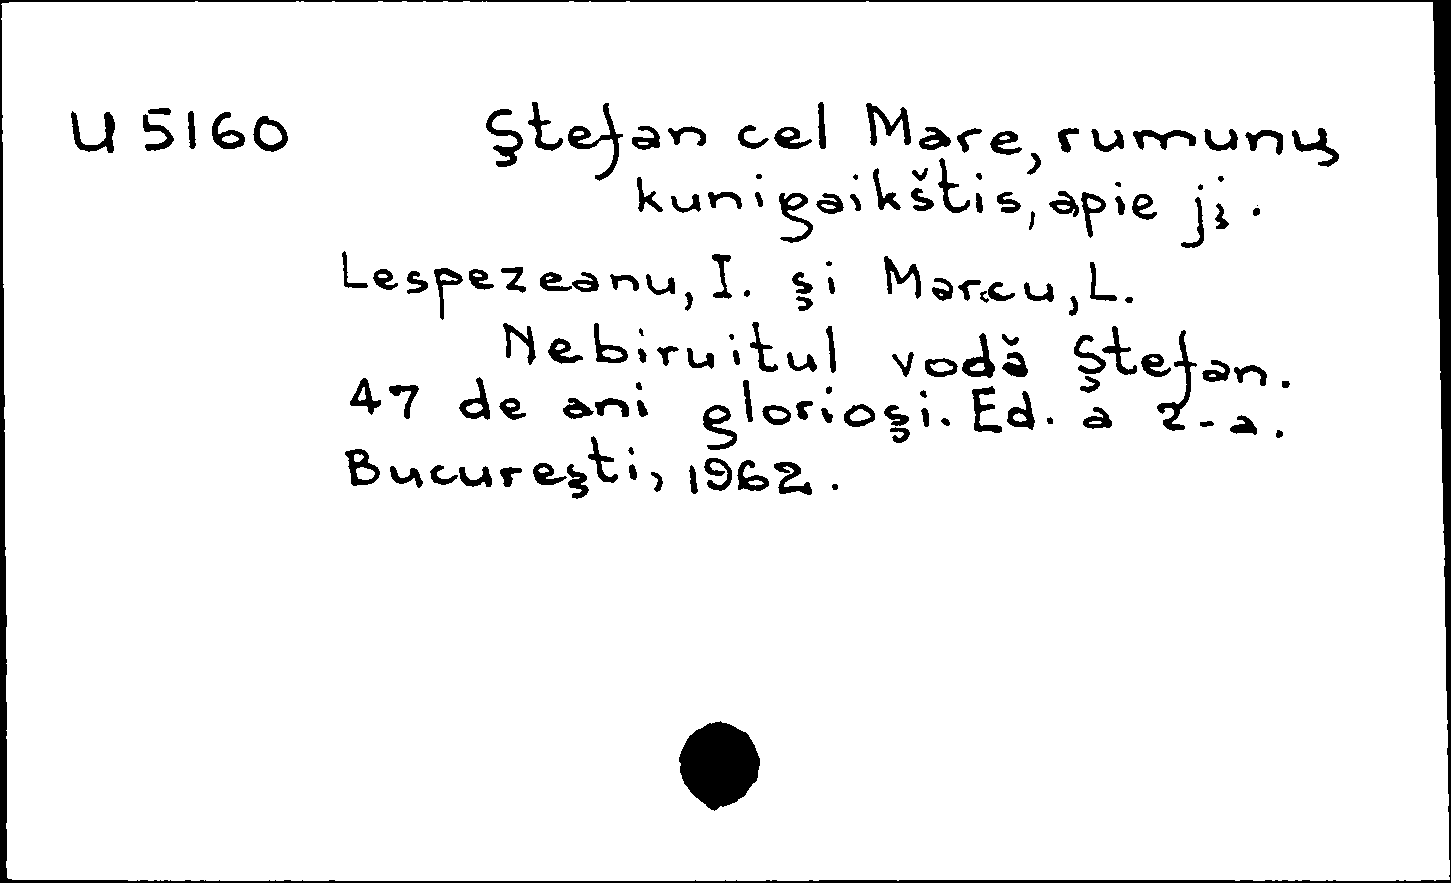 U 5160 Ştefan cel Mare, rumunų
kunigaikštis, apie jį.
Lespezeanu, I. şi Marcu, L.
Nebiruitul vodă Ştefan.
47 de ani glorioşi. Ed. a 2-a.
Bucureşti, 1962.